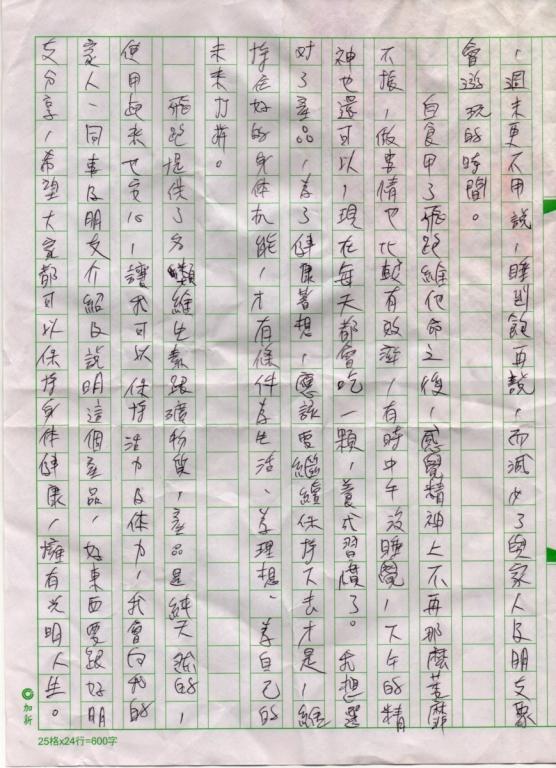 ，週末更不用說，睡到飽再說，而減少了與家人及朋友聚
會遊玩的時間。
自食用了飛跑維他命之後，感覺精神上不再那麼萎靡
不振，做事情也比較有效率，有時中午沒睡覺，下午的精
神也還可以，現在每天都會吃一顆，養成習慣了。我想選
對了產品，為了健康著想，應該要繼續保持下去才是，維
持在好的身體機能，才有條件為生活、為理想、為自己的
未來打拼。
飛跑提供了多種類維生素跟礦物質，產品是純天然的，
使用起來也安心，讓我可以保持活力及體力，我會向我的
家人、同事及朋友介紹及說明這個產品，好東西要跟好朋
友分享，希望大家都可以保持身體健康，擁有光明人生。
加新
25格x24行=600字